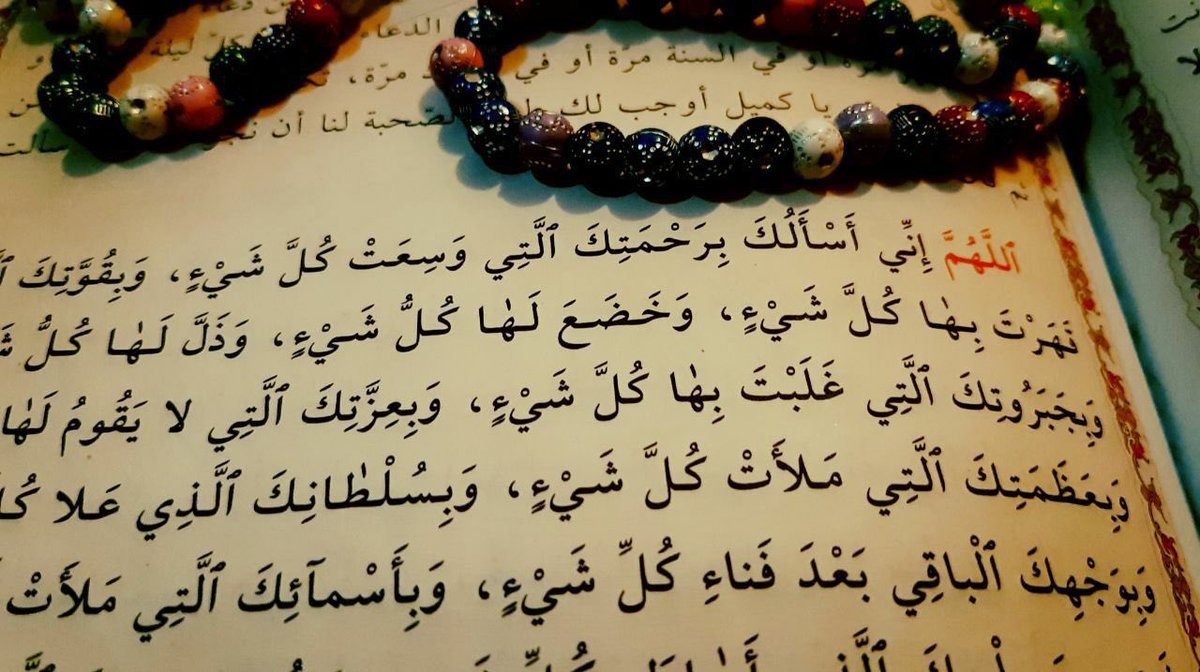 الدعاء كلّ ليلة
أو في السنة مرّة أو في مرّة،
يا كميل أوجب لك الصّحبة لنا أن
ٱللَّهُمَّ إِنِّي أَسْأَلُكَ بِرَحْمَتِكَ ٱلَّتِي وَسِعَتْ كُلَّ شَيْءٍ، وَبِقُوَّتِكَ
قَهَرْتَ بِهٰا كُلَّ شَيْءٍ، وَخَضَعَ لَهٰا كُلُّ شَيْءٍ، وَذَلَّ لَهٰا كُلُّ
وَبِجَبَرُوتِكَ ٱلَّتِي غَلَبْتَ بِهٰا كُلَّ شَيْءٍ، وَبِعِزَّتِكَ ٱلَّتِي لا يَقُومُ لَهٰا
وَبِعَظَمَتِكَ ٱلَّتِي مَلأَتْ كُلَّ شَيْءٍ، وَبِسُلْطٰانِكَ ٱلَّذِي عَلا
وَبِوَجْهِكَ ٱلْباقِي بَعْدَ فَناءِ كُلِّ شَيْءٍ، وَبِأَسْمآئِكَ ٱلَّتِي مَلأَتْ